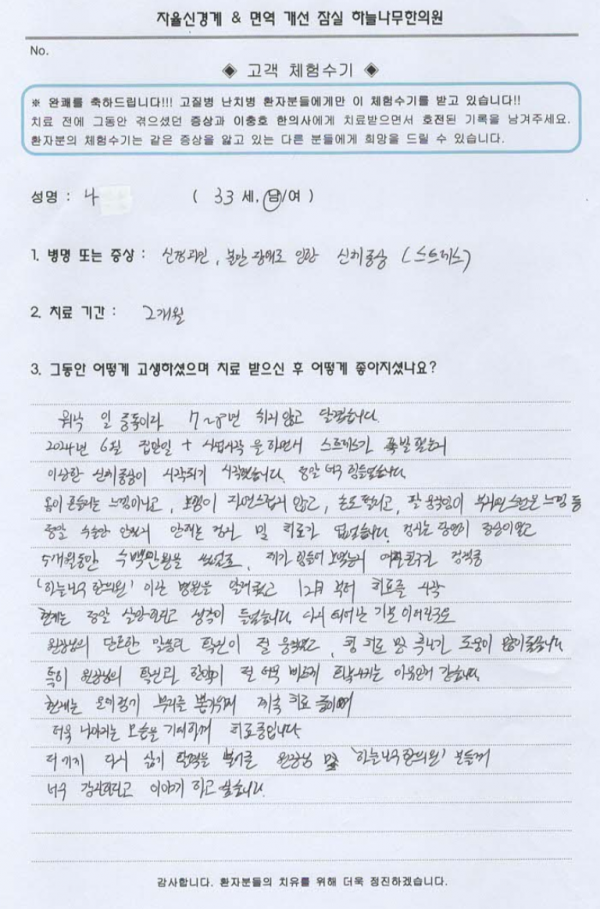 자율신경계 & 면역 개선 잠실 하늘나무한의원
No.
◈ 고객 체험수기 ◈
※ 완쾌를 축하드립니다!!! 고질병 난치병 환자분들에게만 이 체험수기를 받고 있습니다!!
치료 전에 그동안 겪으셨던 증상과 이충호 한의사에게 치료받으면서 호전된 기록을 남겨주세요.
환자분의 체험수기는 같은 증상을 앓고 있는 다른 분들에게 희망을 드릴 수 있습니다.
성명 : 나 ( 33 세, 남/여 )
1. 병명 또는 증상 : 신경과민, 불안 장애로 인한 신체증상 (스트레스)
2. 치료 기간 : 2개월
3. 그동안 어떻게 고생하셨으며 치료 받으신 후 어떻게 좋아지셨나요?
워낙 일 중독이라 7~8년 쉬지않고 달렸습니다.
2024년 6월 집안일 + 사업시작 을 하면서 스트레스가 폭발
이상한 신체증상이 시작되기 시작했습니다. 정말 너무 힘들었습니다.
몸이 흔들리는 느낌이나고, 보행이 자연스럽지 않고, 손도 떨리고, 팔 움직임이 부자연스러운 느낌 등
정말 수많은 안해본 검사 및 치료가 없습니다. 검사는 당연히 정상이었고
5개월동안 수백만원을 쓰고, 제가 힘들어
'하늘나무한의원' 이란 병원을 알게되고 12월 부터 치료를 시작
현재는 정말 살만하다고 생각이 들었습니다. 다시 태어난 기분이
원장님의 단호한 말씀과 확신이 절 움직였고, 침 치료 및 도움이 많이됐습니다
특히 원장님의 확신과 절 더욱 빠르게 같습니다.
현재는 뿌리를 뽑기위해 계속 치료
더욱 나아지는 모습을 기대하며 치료중입니다
다시 삶의 원장님 및 '하늘나무한의원' 분들께
너무 감사하다고 이야기 하고 싶습니다.
감사합니다. 환자분들의 치유를 위해 더욱 정진하겠습니다.